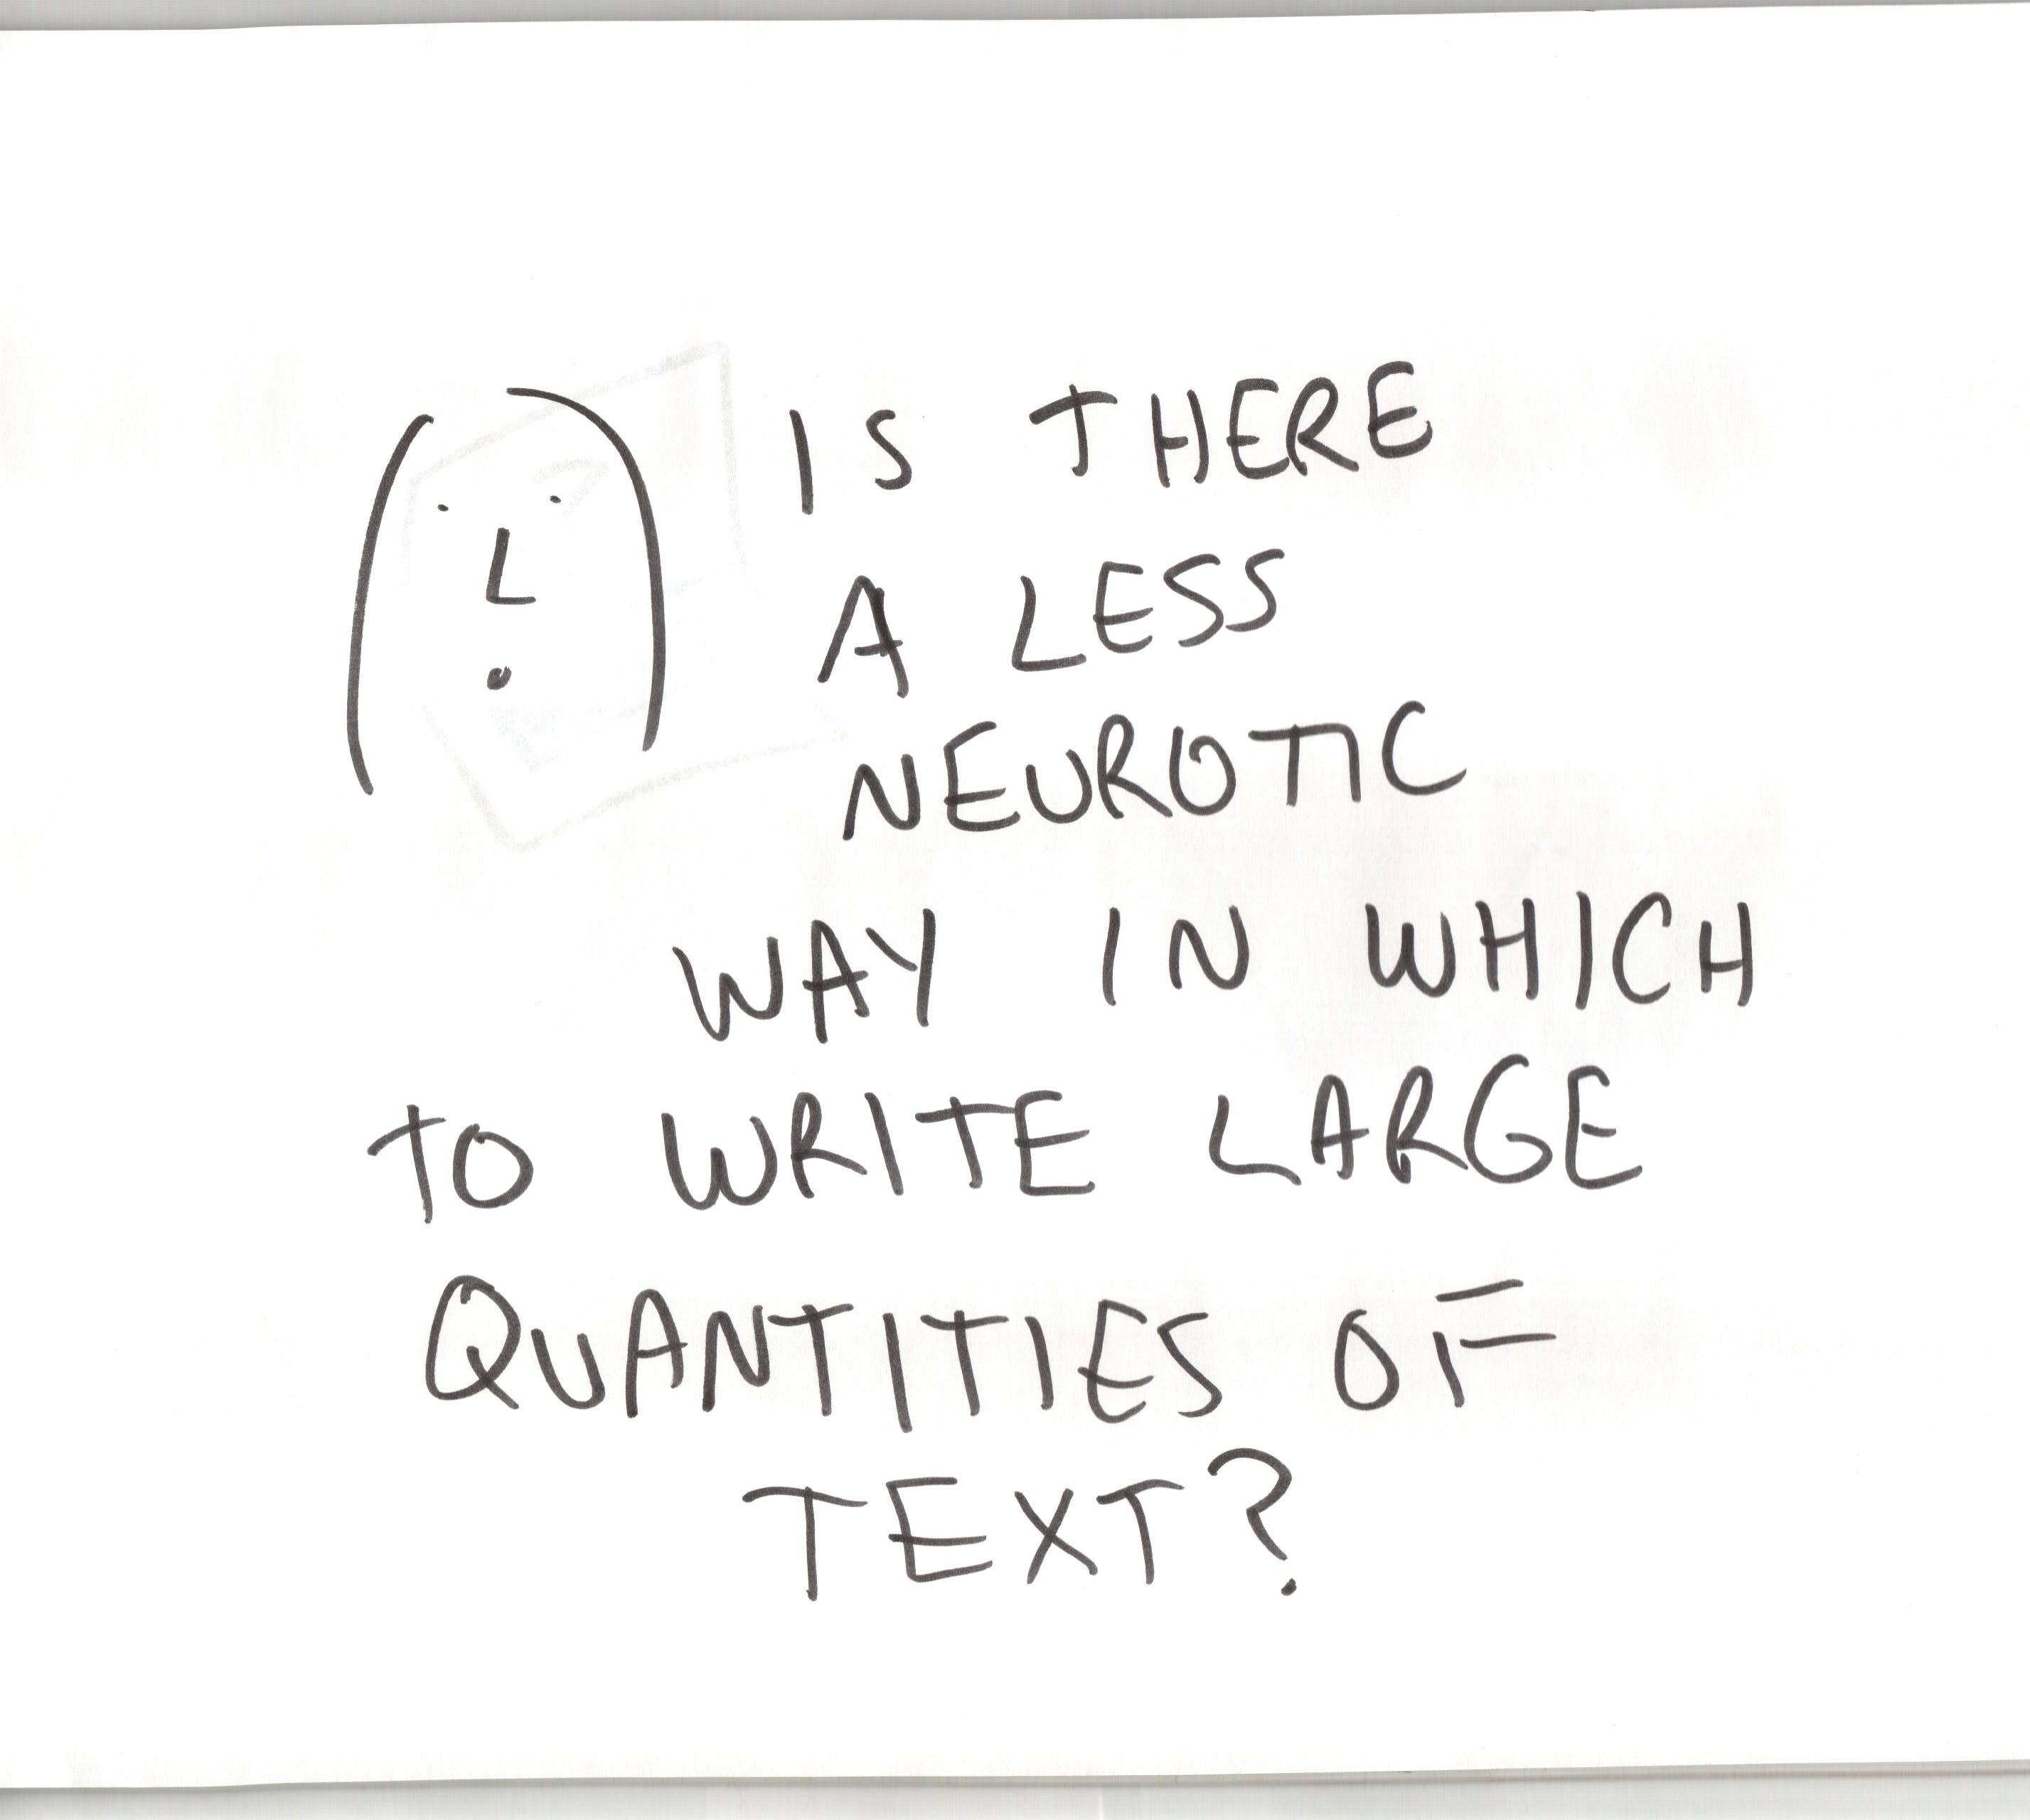 IS THERE
A LESS
NEUROTIC
WAY IN WHICH
TO WRITE LARGE
QUANTITIES OF
TEXT?